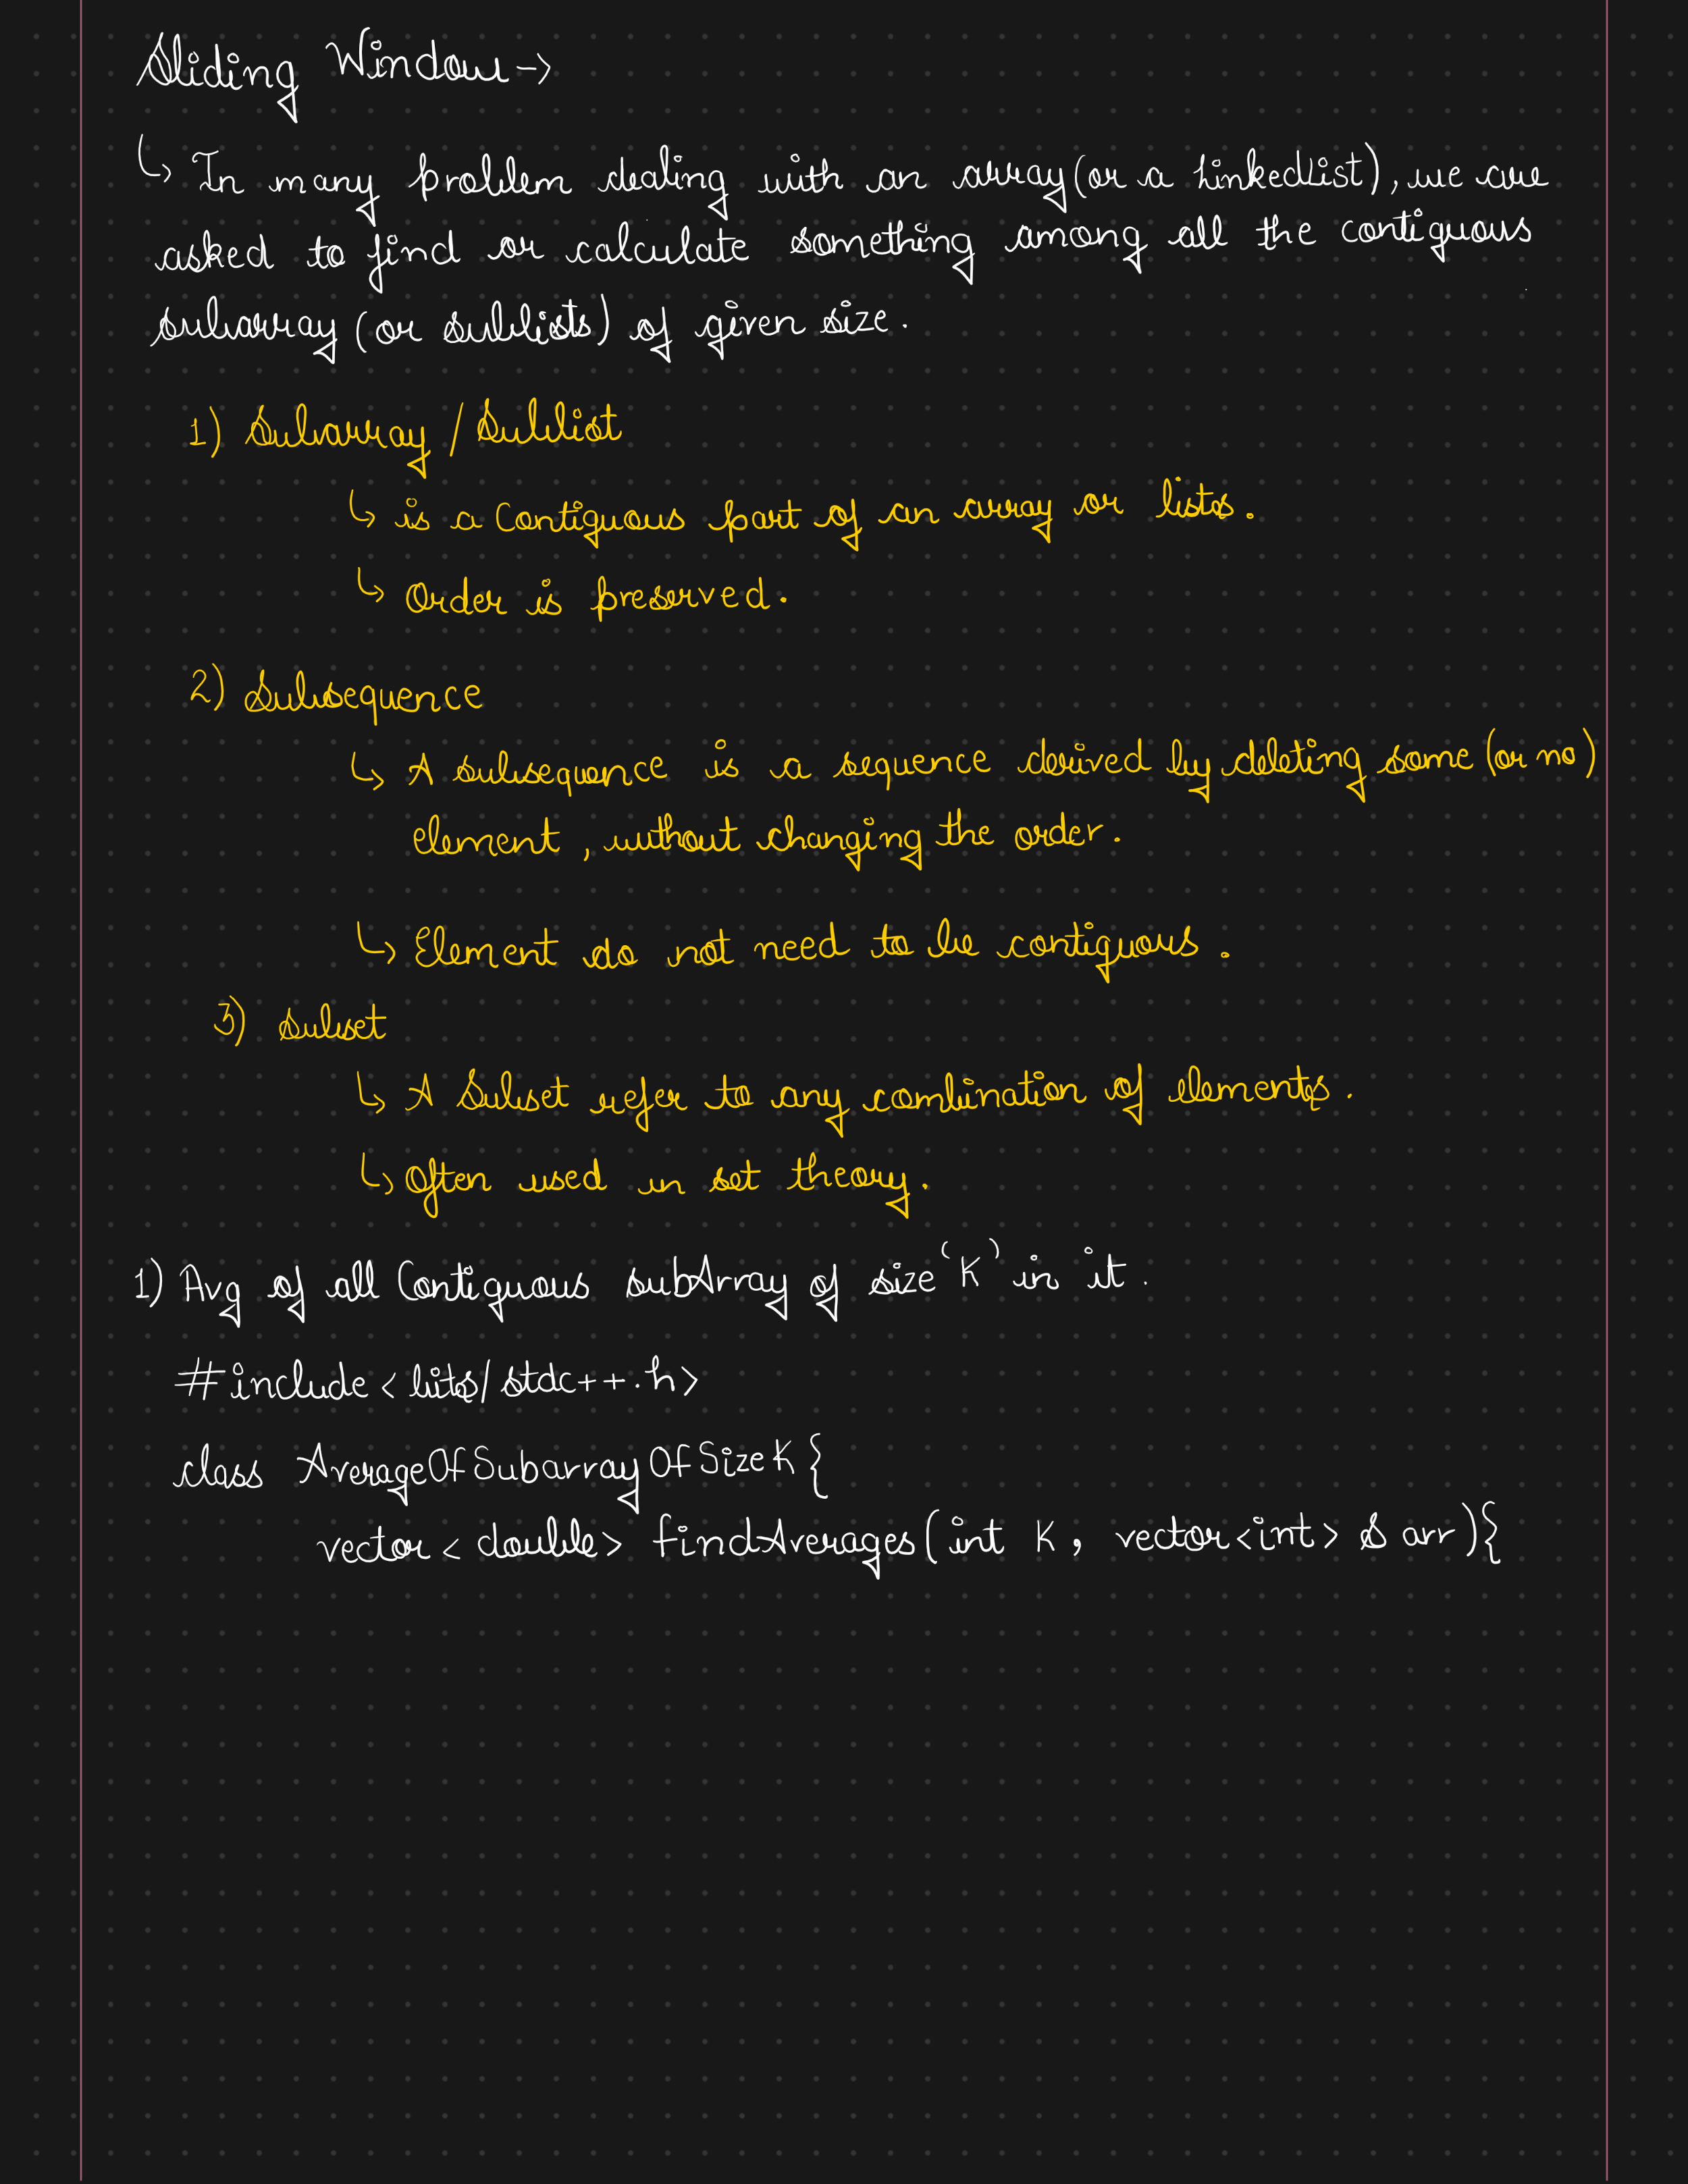 Sliding Window →
↳ In many problem dealing with an array (or a LinkedList), we are
asked to find or calculate something among all the contiguous
subarray (or sublists) of given size.
1) Subarray / Sublist
↳ is a Contiguous part of an array or lists.
↳ Order is preserved.
2) Subsequence
↳ A subsequence is a sequence derived by deleting some (or no)
element, without changing the order.
↳ Element do not need to be contiguous.
3) Subset
↳ A Subset refer to any combination of elements.
↳ Often used in set theory.
1) Avg of all Contiguous subArray of size 'K' in it.
#include <bits/stdc++.h>
class AverageOfSubarrayOfSizeK {
vector<double> findAverages(int K, vector<int> & arr){